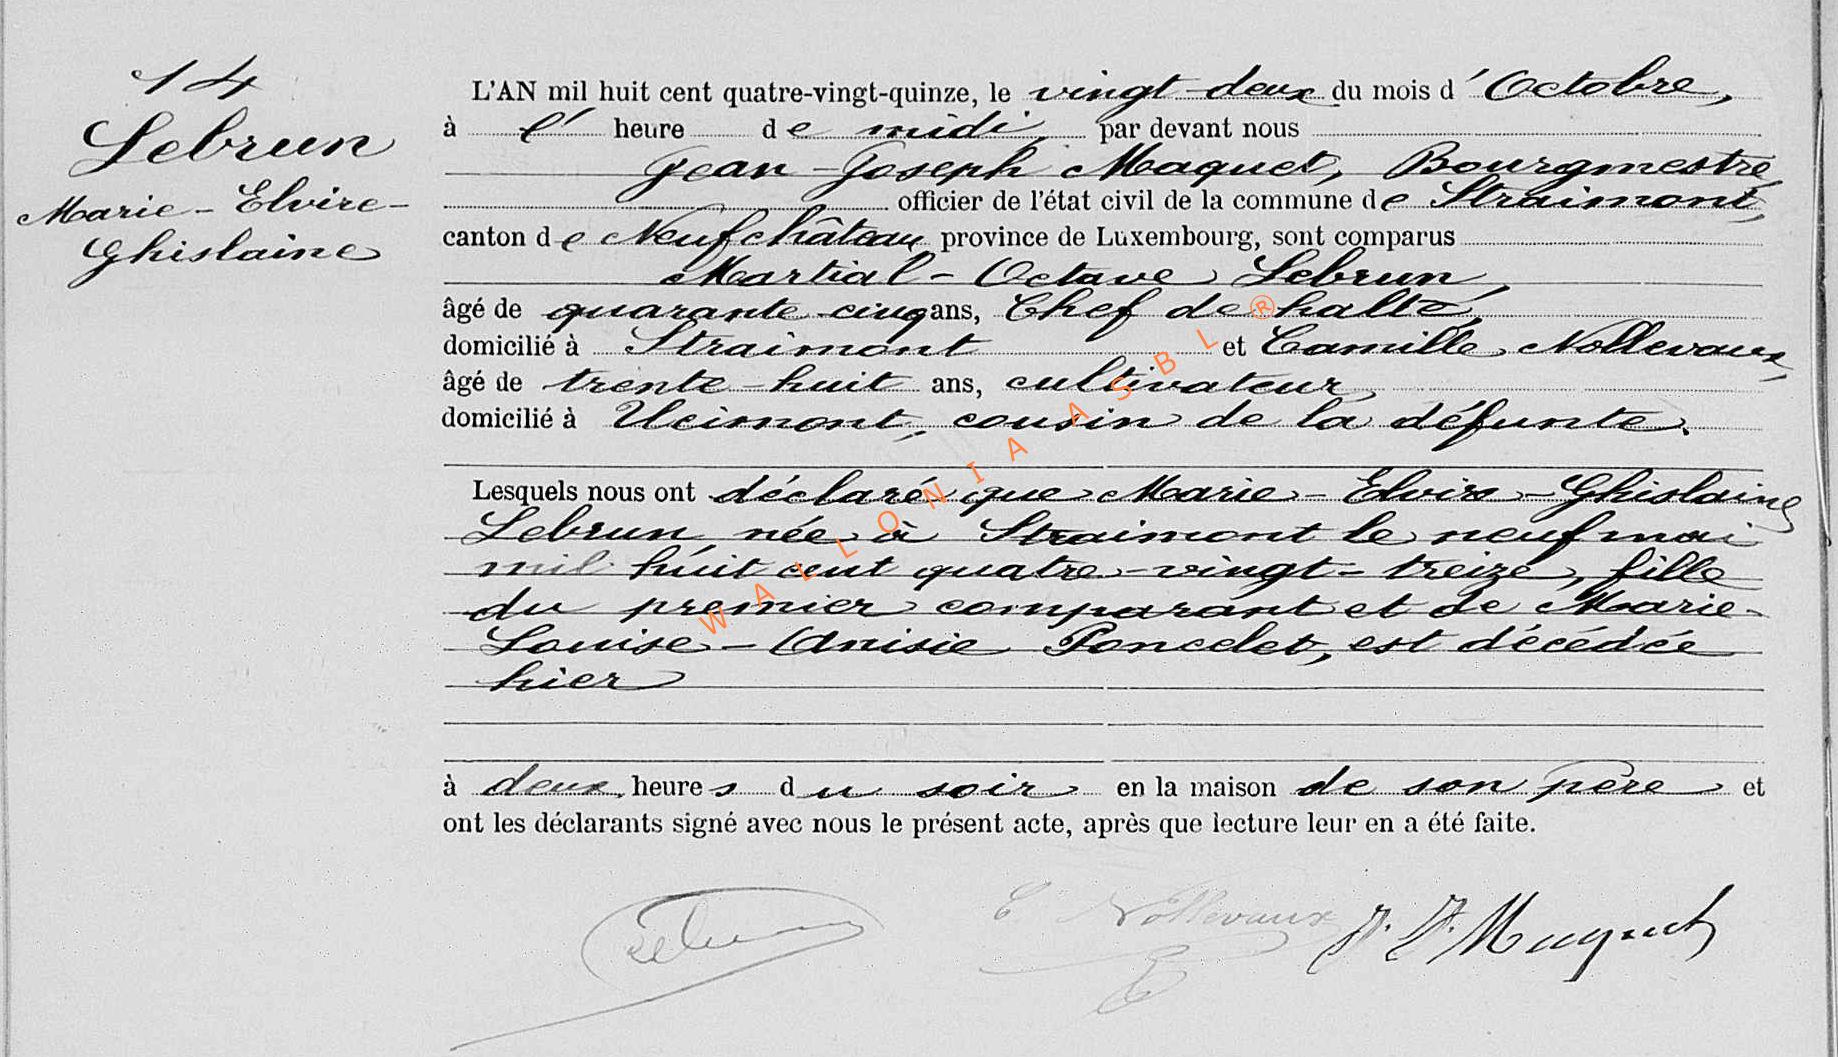 14
Lebrun
Marie-Elvire-
Ghislaine
L'AN mil huit cent quatre-vingt-quinze, le vingt-deux du mois d'Octobre,
à l' heure de midi, par devant nous
Jean-Joseph Maquet, Bourgmestre,
officier de l'état civil de la commune de Straimont,
canton de Neufchâteau province de Luxembourg, sont comparus
Martial-Octave Lebrun,
âgé de quarante-cinq ans, Chef de halte,
domicilié à Straimont et Camille Nollevaux,
âgé de trente-huit ans, cultivateur,
domicilié à Ucimont, cousin de la défunte.
Lesquels nous ont déclaré que Marie-Elvire-Ghislaine
Lebrun née à Straimont le neuf mai
mil huit cent quatre-vingt-treize, fille
du premier comparant et de Marie-
Louise-Anisie Poncelet, est décédée
hier
à deux heures du soir en la maison de son père et
ont les déclarants signé avec nous le présent acte, après que lecture leur en a été faite.
Lebrun
C Nollevaux
J. J. Maquet
WALLONIA ASBL ®